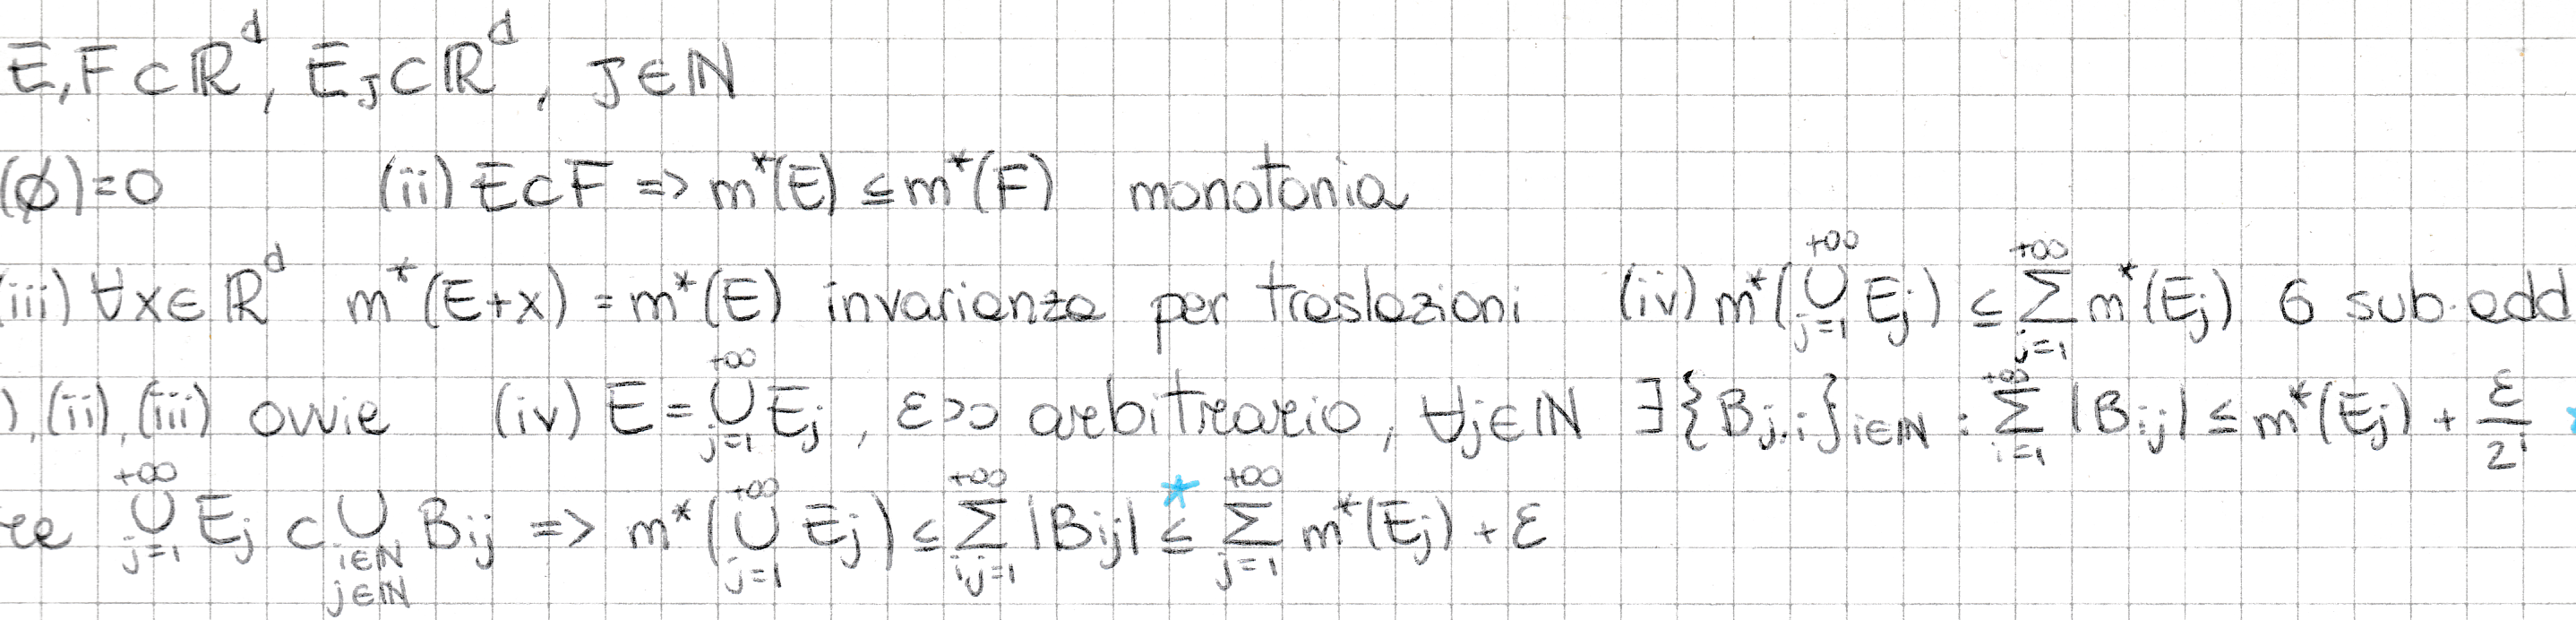 E, F ⊂ ℝ^d, E_J ⊂ ℝ^d, J ∈ ℕ
(∅) = 0 (ii) E ⊂ F => m*(E) ≤ m*(F) monotonia
(iii) ∀x ∈ ℝ^d m*(E+x) = m*(E) invarianza per traslazioni (iv) m*(⋃_{j=1}^{+∞} E_j) ≤ ∑_{j=1}^{+∞} m*(E_j) σ sub.add
), (ii), (iii) ovvie (iv) E = ⋃_{j=1}^{+∞} E_j, ε>0 arbitrario, ∀j∈ℕ ∃{B_{j,i}}_{i∈ℕ} : ∑_{i=1}^{+∞} |B_{ij}| ≤ m*(E_j) + ε/2^i *
re ⋃_{j=1}^{+∞} E_j ⊂ ⋃_{i∈ℕ j∈ℕ} B_{ij} => m*(⋃_{j=1}^{+∞} E_j) ≤ ∑_{i,j=1}^{+∞} |B_{ij}| ≤* ∑_{j=1}^{+∞} m*(E_j) + ε